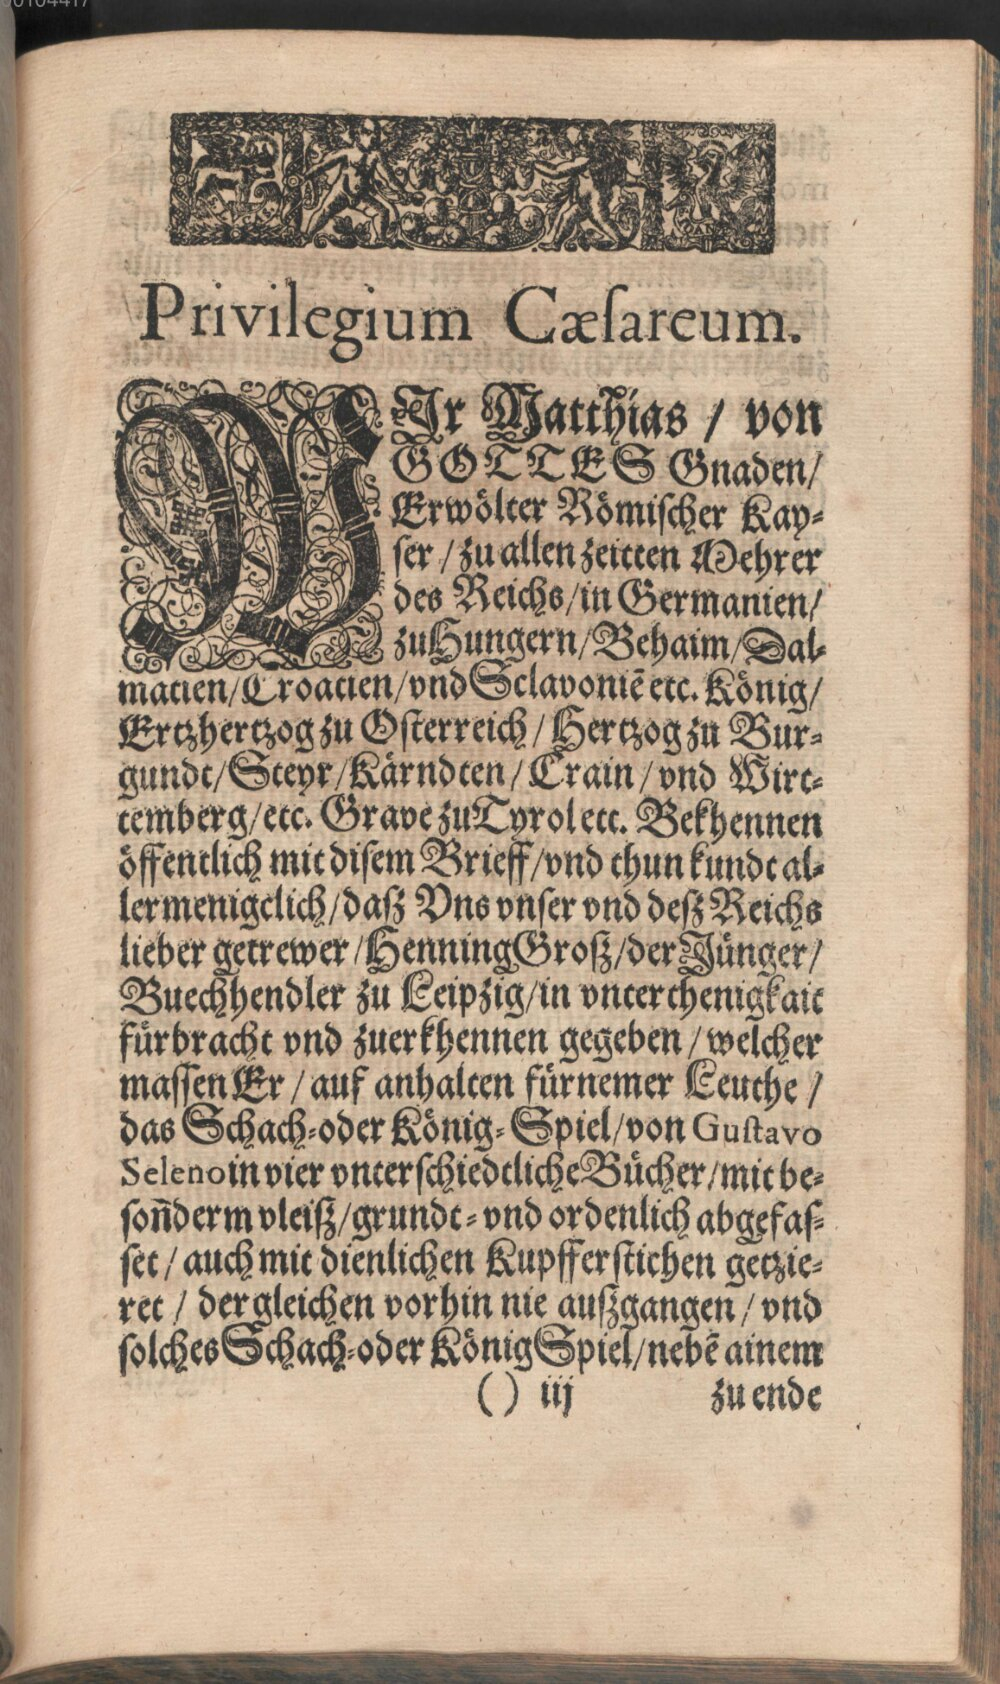 Privilegium Cæſareum.
WIr Matthias / von
GOTTES Gnaden/
Erwölter Römiſcher Kay⸗
ſer / zu allen zeitten Mehrer
des Reichs/in Germanien/
zu Hungern/Behaim/Dal⸗
matien/Croatien/vnd Sclavoniē etc. König/
Ertzhertzog zu Oſterreich / Hertzog zu Bur⸗
gundt/Steyr/Kärndten / Crain / vnd Wirt⸗
temberg/etc. Grave zu Tyrol etc. Bekhennen
öffentlich mit diſem Brieff/vnd thun kundt al⸗
lermenigelich/daſz Vns vnſer vnd deſz Reichs
lieber getrewer /Henning Groſz/der Jünger/
Buechhendler zu Leipzig/in vnterthenigkait
fürbracht vnd zuerkhennen gegeben / welcher
maſſen Er / auf anhalten fürnemer Leuthe /
das Schach⸗oder König⸗ Spiel/von Guſtavo
Seleno in vier vnterſchiedtliche Bücher/mit be⸗
ſoñderm vleiſz/grundt⸗ vnd ordenlich abgefaſ⸗
ſet / auch mit dienlichen Kupfferſtichen getzie⸗
ret / dergleichen vorhin nie auſzgangen / vnd
ſolches Schach⸗oder König Spiel/nebē ainem
( ) iij zu ende